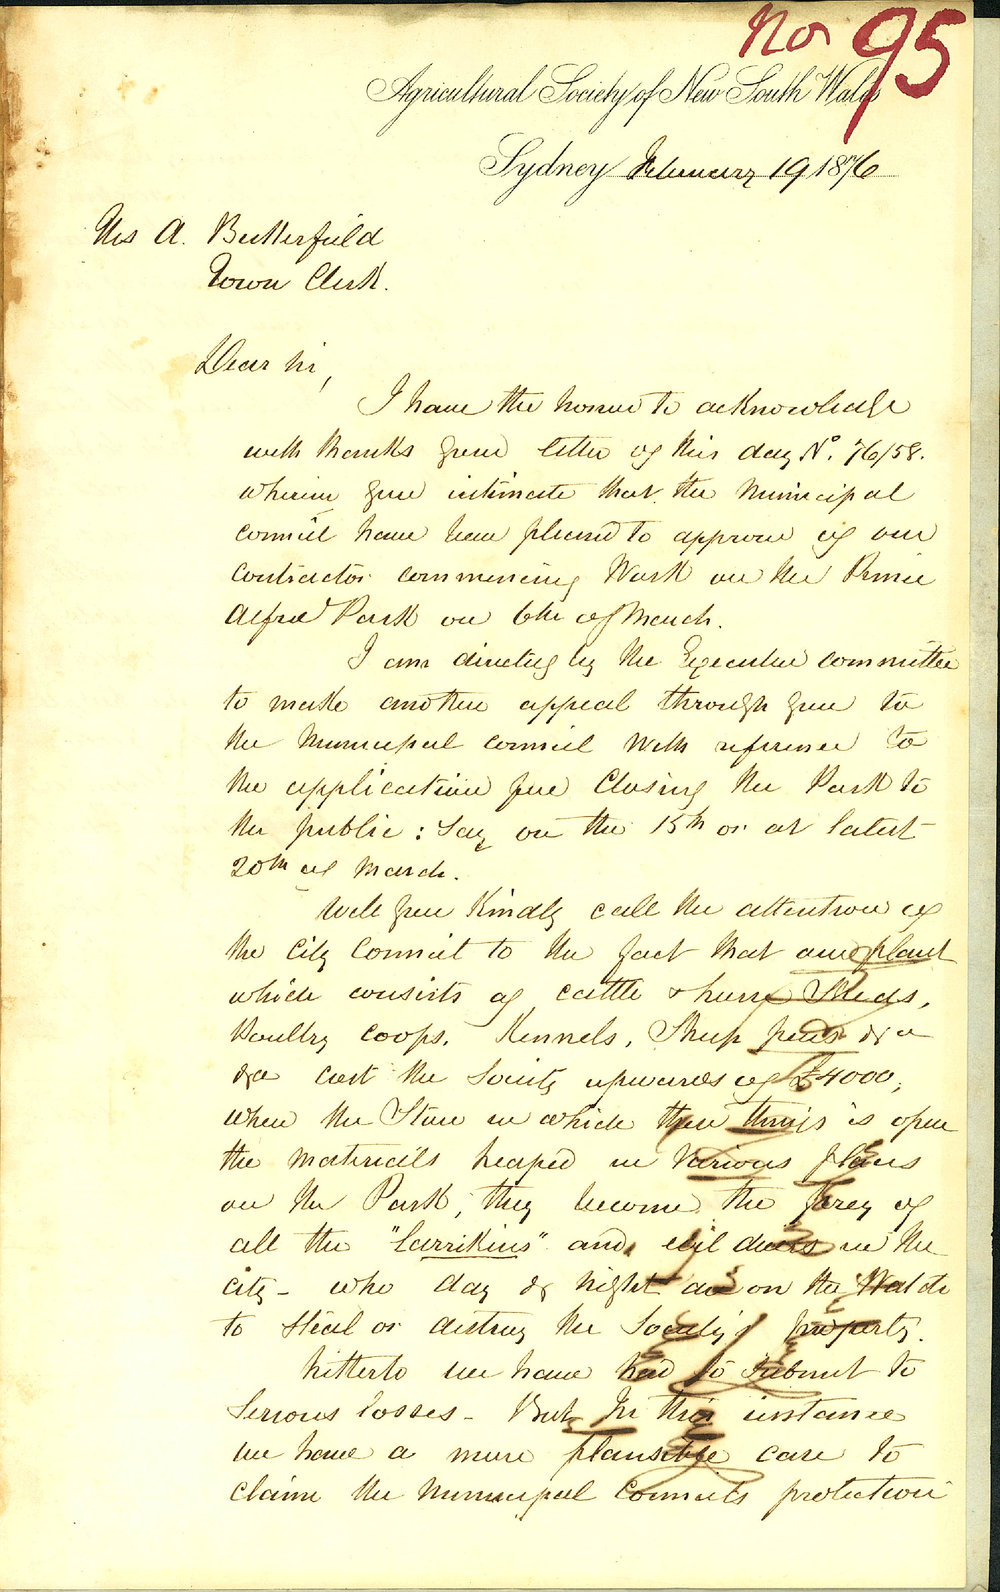 No 95
Agricultural Society of New South Wales
Sydney February 19 1876
A. Butterfield
Town Clerk.
Dear Sir,
I have the honor to acknowledge
with thanks your letter of this day No. 76/58.
wherein you intimate that the Municipal
Council have been pleased to approve of our
contractor commencing Work on the Prince
Alfred Park on 6th of March.
I am directed by the Executive committee
to make another appeal through you to
the Municipal Council with reference to
the application for Closing the Park to
the public: Say on the 15th or at latest
20th of March.
Will you Kindly call the attention of
the City Council to the fact that our plant
which consists of cattle & horse Sheds,
Poultry coops, Kennels, Sheep pens &c
&c cost the Society upwards of £4000,
when the Store in which these things is open
the materials heaped in various places
on the Park, they become the prey of
all the "Larrikins" and evil doers in the
city - who day & night are on the Watch
to steal or destroy the Society's property.
hitherto we have had to submit to
Serious losses - But In this instance
we have a more plausible case to
claim the Municipal Councils protection